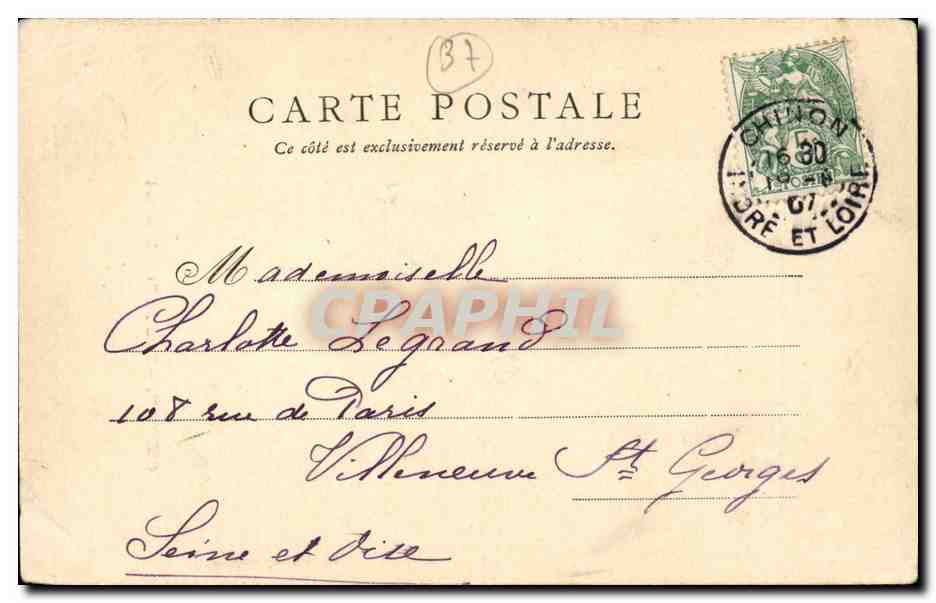 37
CARTE POSTALE
Ce côté est exclusivement réservé à l'adresse.
CHINON
16 30
19 -8
07
INDRE ET LOIRE
5
Mademoiselle
CPAPHIL
Charlotte Legrand
108 rue de Paris
Villeneuve St Georges
Seine et Oise